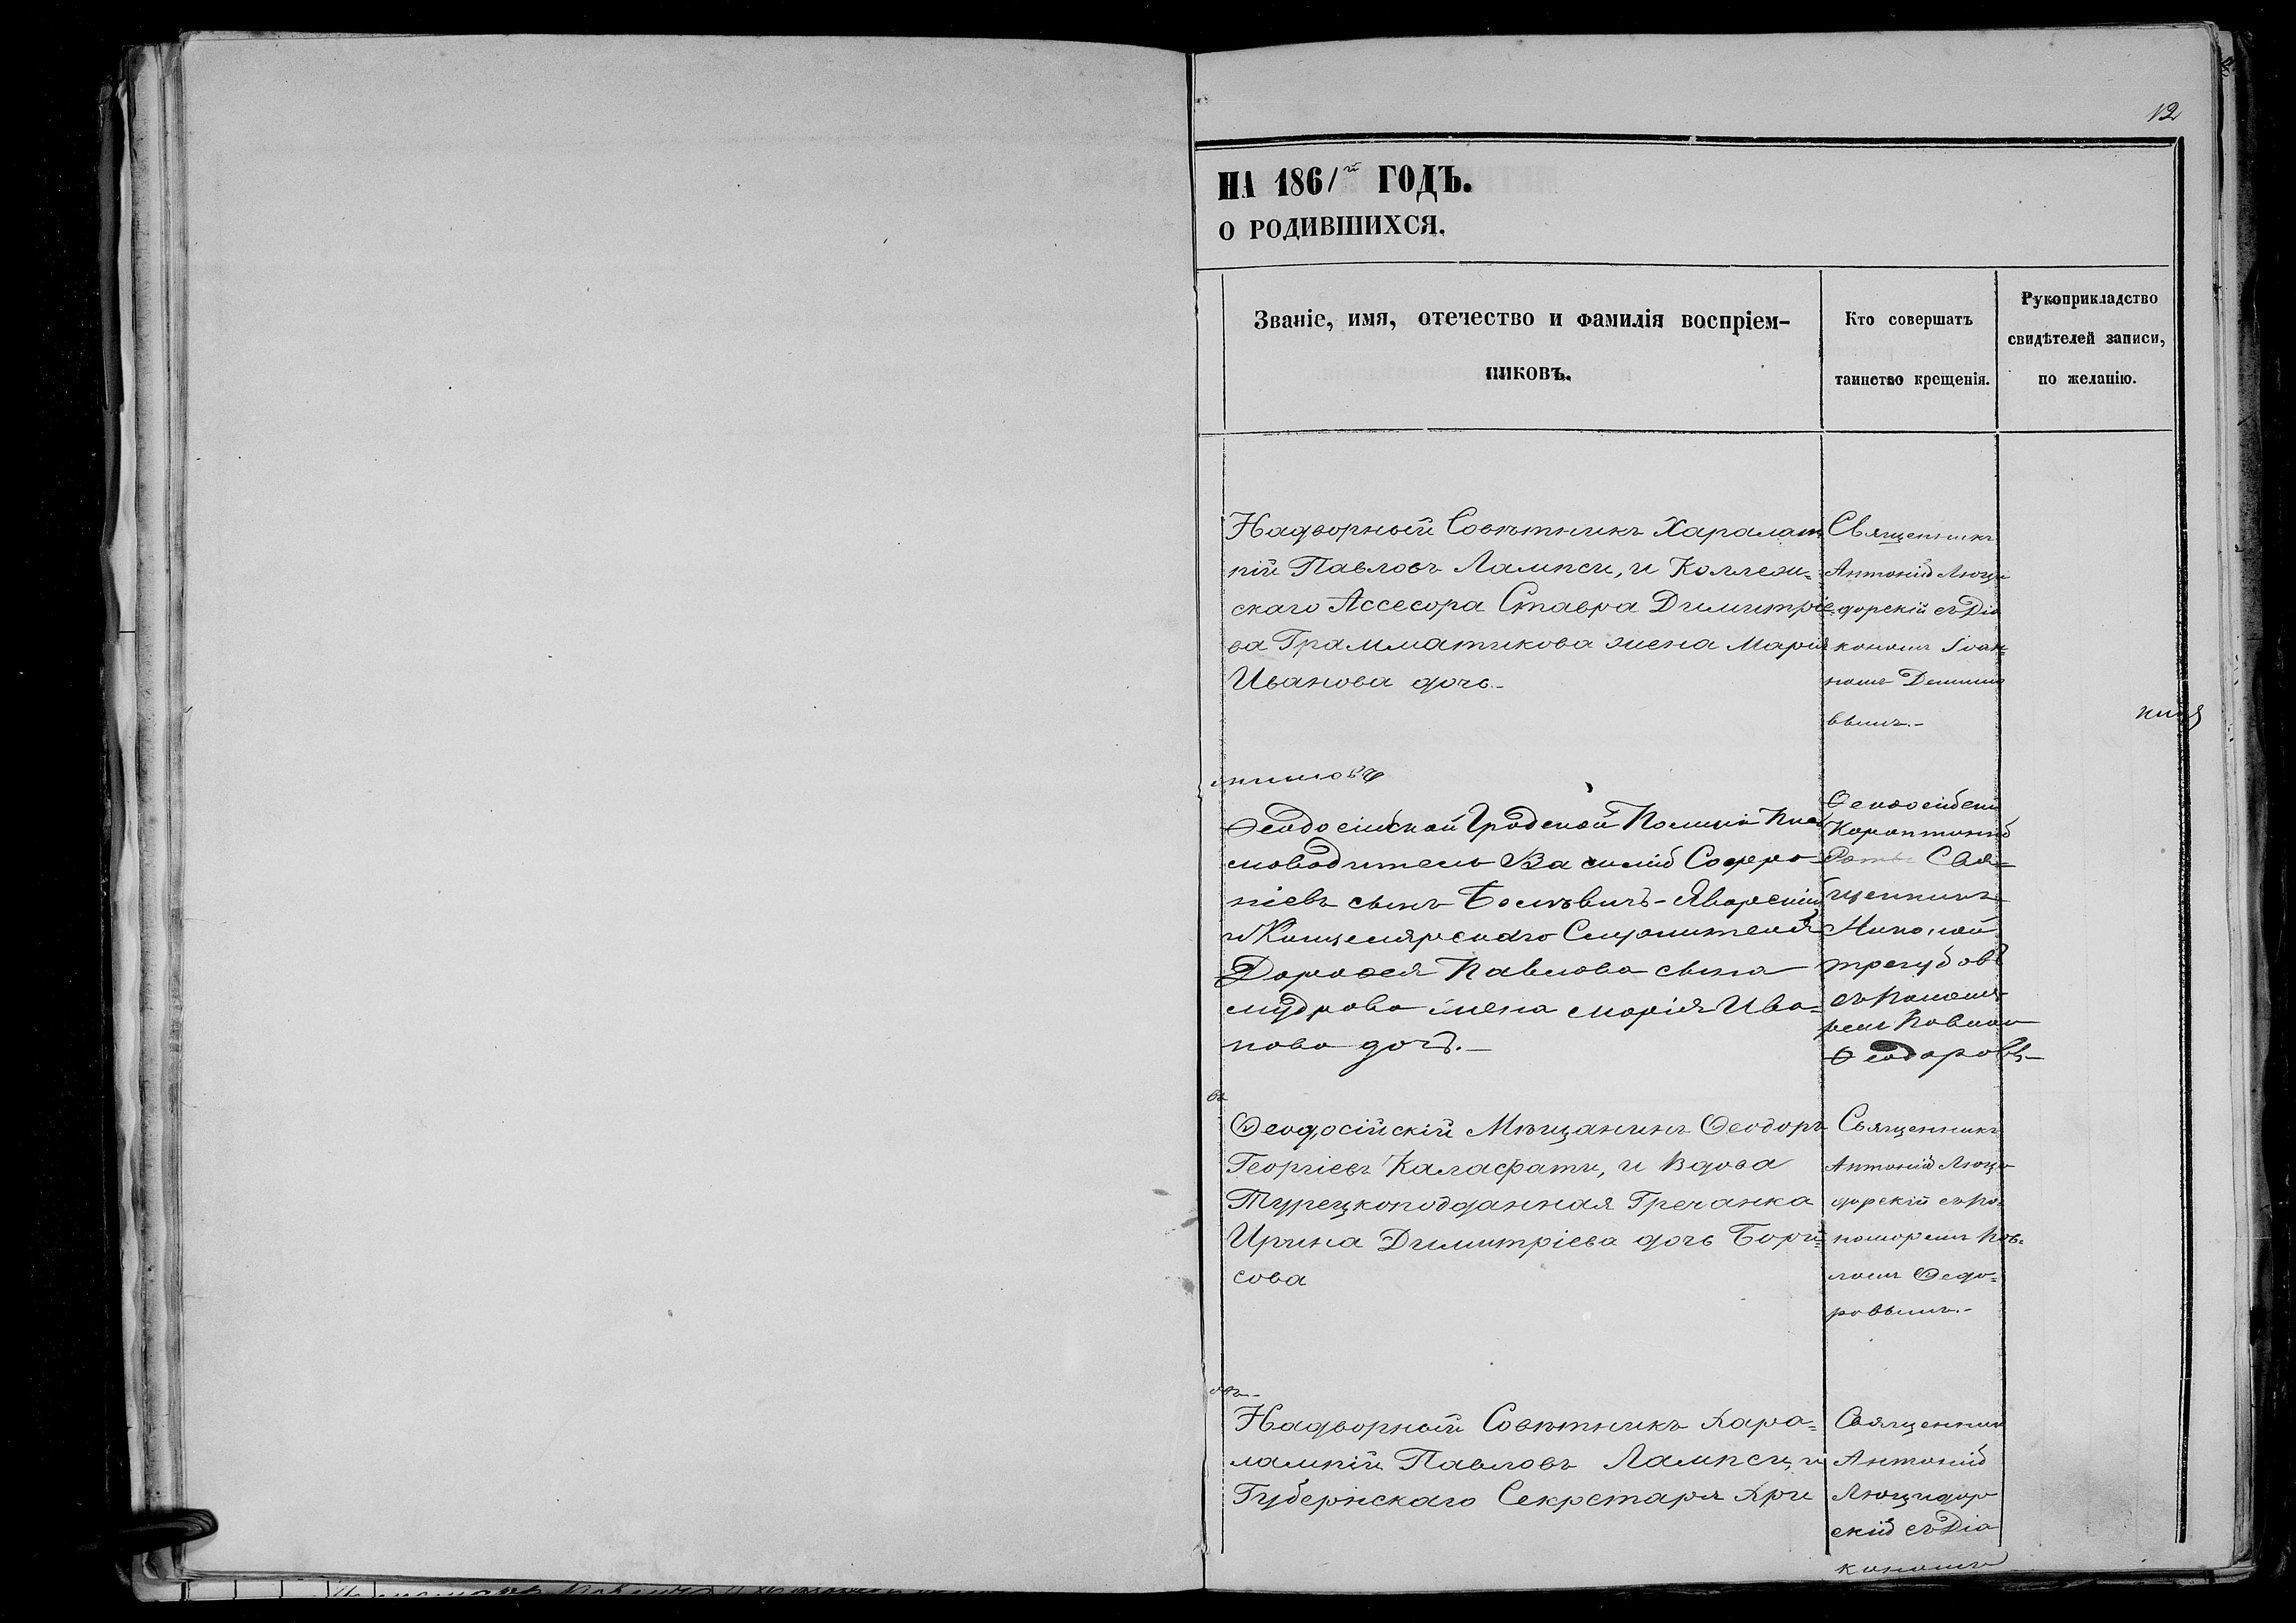 12
НА 1861й ГОДЪ.
О РОДИВШИХСЯ.
Званіе, имя, отечество и фамилія воспріем-
никовъ.
Кто совершатъ
таинство крещенія.
Рукоприкладство
свидѣтелей записи,
по желанію.
Надворный Совѣтникъ Харалам
пій Павловъ Лампси, и Коллеж-
скаго Ассесора Ставра Димитріе-
ва Грамматикова жена Марія
Иванова дочь.-
Священникъ
Антоній Люци
дорскій съ Діа
кономъ Іоан-
номъ
вымъ.-
Ѳеодосійской Градской Полиціи
Василій Софро
ніевъ сынъ Яворскій
и Канцелярскаго Служителя
Дороѳея Павлова сына
жена Марія Ива-
нова дочь.-
Свя-
щенникъ
Николай
Трегубовъ
съ
Ѳеодоровъ-
Ѳеодосійскій Мѣщанинъ Ѳеодоръ
Георгіевъ Каласфати, и Вдова
Турецкоподданная Гречанка
Ирина Димитріева дочь Бори-
сова
Священникъ
Антоній Люци
дорскій съ по-
номоремъ Пав-
ломъ Ѳедо-
ровымъ.-
Надворный Совѣтникъ Хара-
лампій Павловъ Лампси, и
Губернскаго Секретаря Хри
Священникъ
Антоній
Люцидор
скій съ Діа
кономъ